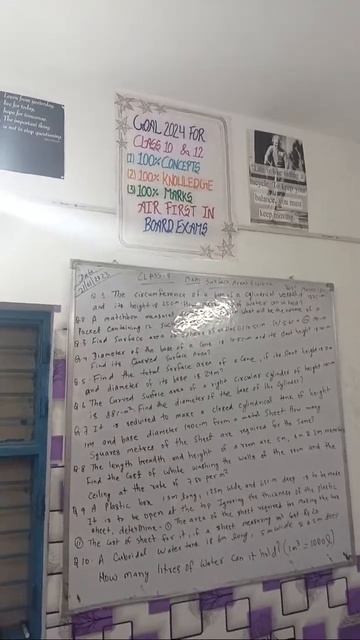 Learn from yesterday,
live for today,
hope for tomorrow.
The important thing
is not to stop questioning.
GOAL 2024 FOR
CLASS 10 & 12
(1) 100% CONCEPTS
(2) 100% KNOWLEDGE
(3) 100% MARKS
AIR FIRST IN
BOARD EXAMS
Life is like riding a
bicycle. To keep your
balance, you must
keep moving.
Date
CLASS-9 Surface Area & Volume
Q.1 The circumference of a base of a cylindrical vessel is 132 cm
and its height is 25 cm. How many litres of water can it hold?
Q.2 A matchbox measures
Packet containing 12 such
Q.3 Find Surface area
Q.4 Diameter of the base of a Cone is 10.5 cm and its slant height is 10 cm
Find its Curved Surface Area?
Q.5 Find the total Surface area of a Cone, if its slant height is 21m
and diameter of its base is 24m?
Q.6 The Curved Surface area of a right circular cylinder of height 14 cm
is 88 cm². Find the diameter of the base of the cylinder?
Q.7 It is required to make a closed cylindrical tank of height
1m and base diameter 140cm from a metal Sheet. How many
Squares metres of the Sheet are required for the Same?
Q.8 The length, breadth and height of a room are 5m, 4m & 3m
Find the Cost of white washing the walls of the room and the
Ceiling at the rate of 7.50 per m²
Q.9 A Plastic box 1.5m long, 1.25m wide and 65cm deep is to be made
It is to be open at the top. Ignoring the thickness of the plastic
Sheet, determine: (i) The area of the sheet required for making the box
(ii) The cost of sheet for it, if a sheet measuring 1m² Cost Rs 20
Q.10. A Cuboidal Water tank is 6m long, 5m wide & 4.5m deep
How many litres of Water Can it hold? (1m³ = 1000l)